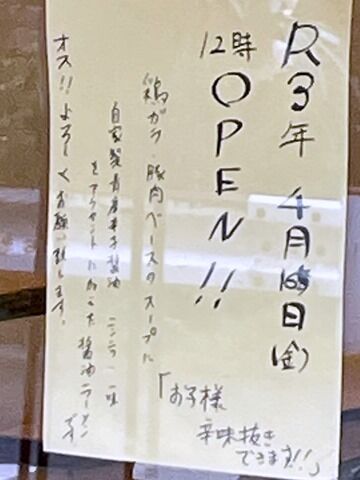 R3年 4月16日(金)
12時OPEN!!
鶏ガラ、豚肉ベースのスープに
自家製青唐辛子醤油 ニンニク 一味
をアクセントに加えた醤油ラーメンです
オス!! よろしくお願い致します。
「お子様
辛味抜き
できます!!」